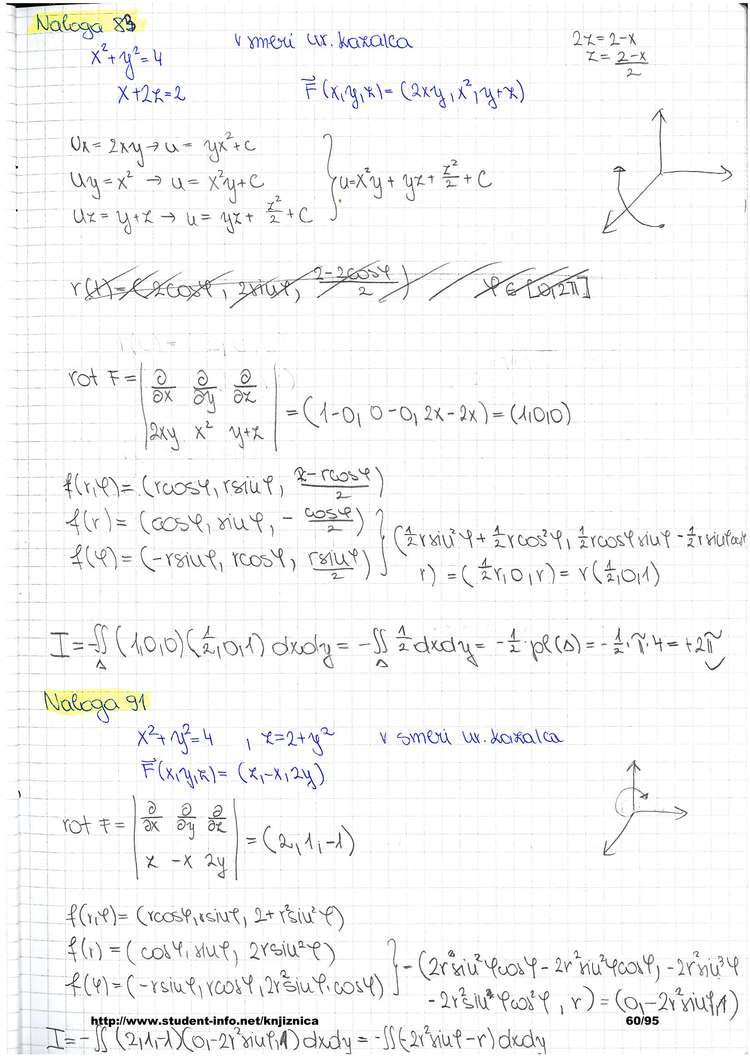 Naloga 83
x²+y²=4 v smeri ur. kazalca 2z=2-x
x+2z=2 F⃗(x,y,z)=(2xy, x², y+z) z=(2-x)/2
Ux=2xy→u= yx²+c
Uy=x² → u= x²y+c
Uz=y+z → u= yz+ z²/2 +c } u=x²y+ yz+ z²/2 + c
r(t)=(2cosφ, 2sinφ, (2-2cosφ)/2) φ∈[0,2π]
rot F= | ∂/∂x ∂/∂y ∂/∂z |
| 2xy x² y+z | =(1-0, 0-0, 2x-2x)=(1,0,0)
f(r,φ)=(rcosφ, rsinφ, (2-rcosφ)/2)
f(r)=(cosφ, sinφ, - cosφ/2)
f(φ)=(-rsinφ, rcosφ, rsinφ/2) } (½rsin²φ+½rcos²φ, ½rcosφsinφ-½rsinφcosφ
r)=(½r,0,r)=r(½,0,1)
I=-∬Δ (1,0,0)(½,0,1)dxdy= -∬Δ ½dxdy= -½·pl(Δ)=-½·π·4=+2π
Naloga 91
x²+y²=4 , z=2+y² v smeri ur. kazalca
F⃗(x,y,z)=(z,-x,2y)
rot F= | ∂/∂x ∂/∂y ∂/∂z |
| z -x 2y | =(2,1,-1)
f(r,φ)=(rcosφ,rsinφ, 2+r²sin²φ)
f(r)=(cosφ, sinφ, 2rsin²φ)
f(φ)=(-rsinφ, rcosφ, 2r²sinφ·cosφ) } -(2r²sin²φcosφ-2r²sin²φcosφ, -2r²sin³φ
-2r²sinφcos²φ, r)=(0,-2r²sinφ,1)
http://www.student-info.net/knjiznica 60/95
I=-∬(2,1,-1)(0,-2r²sinφ,1)dxdy=-∬(-2r²sinφ-r)dxdy